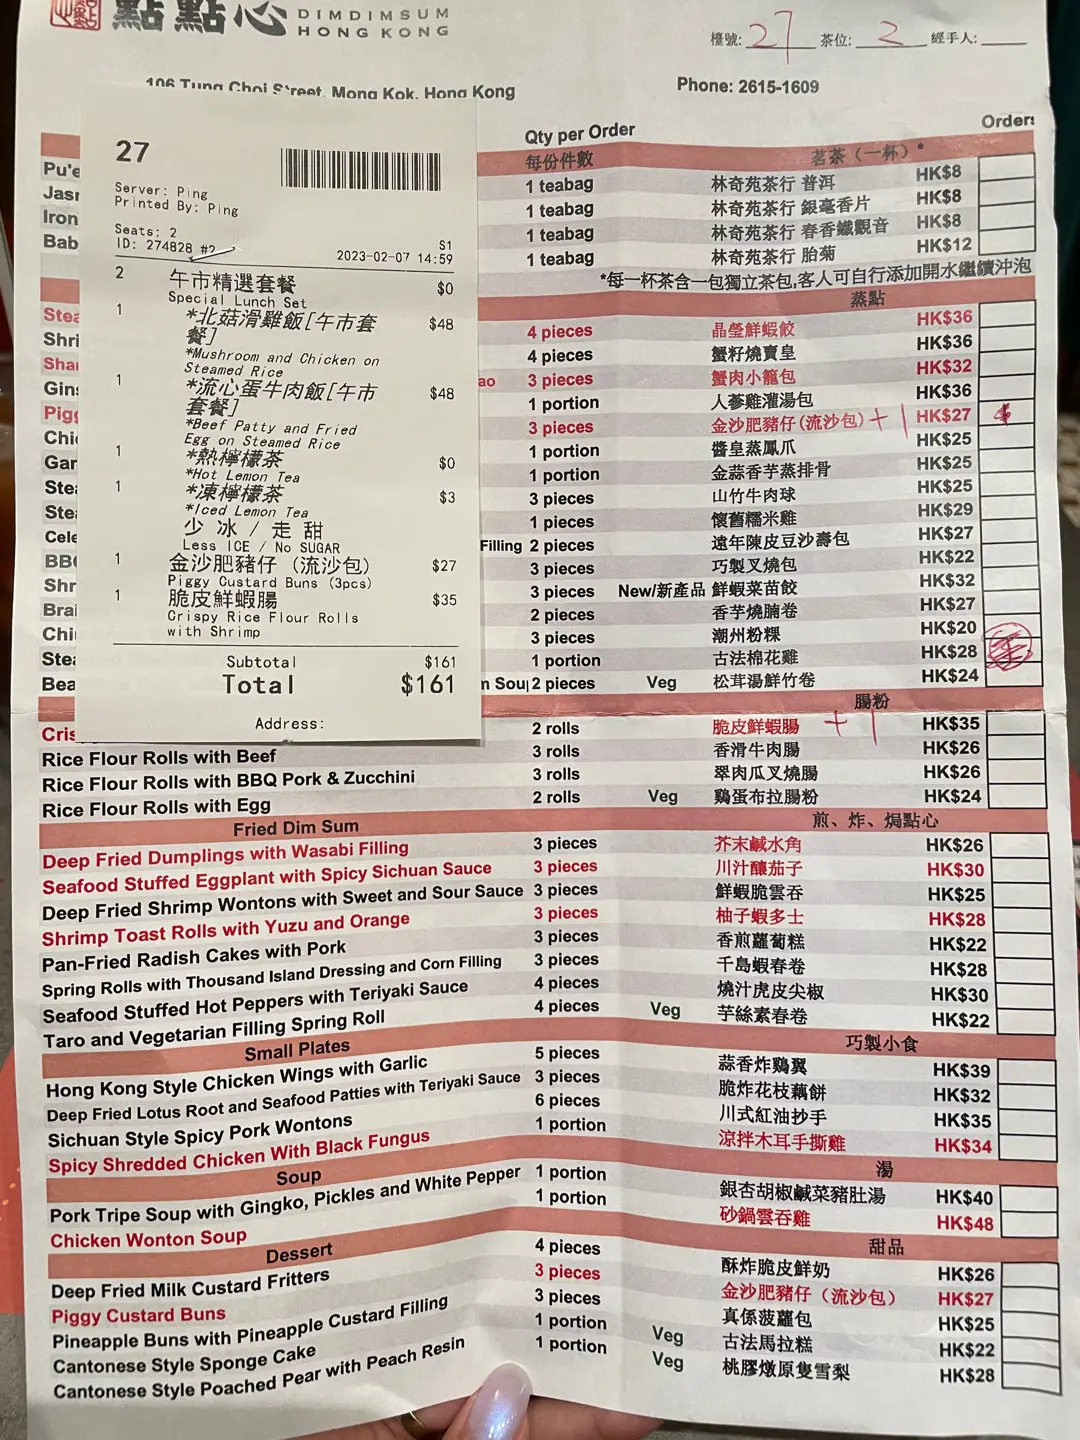 點點心 DIMDIMSUM
HONG KONG
檯號: 27 茶位: 2 經手人:
106 Tung Choi Street, Mong Kok, Hong Kong Phone: 2615-1609
Qty per Order
每份件數 茗茶（一杯）*
1 teabag 林奇苑茶行 普洱 HK$8
1 teabag 林奇苑茶行 銀毫香片 HK$8
1 teabag 林奇苑茶行 春香鐵觀音 HK$8
1 teabag 林奇苑茶行 胎菊 HK$12
*每一杯茶含一包獨立茶包,客人可自行添加開水繼續沖泡
蒸點
4 pieces 晶瑩鮮蝦餃 HK$36
4 pieces 蟹籽燒賣皇 HK$36
ao 3 pieces 蟹肉小籠包 HK$32
1 portion 人蔘雞灌湯包 HK$36
3 pieces 金沙肥豬仔(流沙包) +1 HK$27
1 portion 醬皇蒸鳳爪 HK$25
1 portion 金蒜香芋蒸排骨 HK$25
3 pieces 山竹牛肉球 HK$25
1 pieces 懷舊糯米雞 HK$29
Filling 2 pieces 遠年陳皮豆沙壽包 HK$27
3 pieces 巧製叉燒包 HK$22
3 pieces New/新產品 鮮蝦菜苗餃 HK$32
2 pieces 香芋燒腩卷 HK$27
3 pieces 潮州粉粿 HK$20
1 portion 古法棉花雞 HK$28
n Soup 2 pieces Veg 松茸湯鮮竹卷 HK$24
腸粉
Cris 2 rolls 脆皮鮮蝦腸 +1 HK$35
Rice Flour Rolls with Beef 3 rolls 香滑牛肉腸 HK$26
Rice Flour Rolls with BBQ Pork & Zucchini 3 rolls 翠肉瓜叉燒腸 HK$26
Rice Flour Rolls with Egg 2 rolls Veg 鷄蛋布拉腸粉 HK$24
Fried Dim Sum 煎、炸、焗點心
Deep Fried Dumplings with Wasabi Filling 3 pieces 芥末鹹水角 HK$26
Seafood Stuffed Eggplant with Spicy Sichuan Sauce 3 pieces 川汁釀茄子 HK$30
Deep Fried Shrimp Wontons with Sweet and Sour Sauce 3 pieces 鮮蝦脆雲吞 HK$25
Shrimp Toast Rolls with Yuzu and Orange 3 pieces 柚子蝦多士 HK$28
Pan-Fried Radish Cakes with Pork 3 pieces 香煎蘿蔔糕 HK$22
Spring Rolls with Thousand Island Dressing and Corn Filling 3 pieces 千島蝦春卷 HK$28
Seafood Stuffed Hot Peppers with Teriyaki Sauce 4 pieces 燒汁虎皮尖椒 HK$30
Taro and Vegetarian Filling Spring Roll 4 pieces Veg 芋絲素春卷 HK$22
Small Plates 巧製小食
Hong Kong Style Chicken Wings with Garlic 5 pieces 蒜香炸鷄翼 HK$39
Deep Fried Lotus Root and Seafood Patties with Teriyaki Sauce 3 pieces 脆炸花枝藕餅 HK$32
Sichuan Style Spicy Pork Wontons 6 pieces 川式紅油抄手 HK$35
Spicy Shredded Chicken With Black Fungus 1 portion 涼拌木耳手撕雞 HK$34
Soup 湯
Pork Tripe Soup with Gingko, Pickles and White Pepper 1 portion 銀杏胡椒鹹菜豬肚湯 HK$40
Chicken Wonton Soup 1 portion 砂鍋雲吞雞 HK$48
Dessert 甜品
Deep Fried Milk Custard Fritters 4 pieces 酥炸脆皮鮮奶 HK$26
Piggy Custard Buns 3 pieces 金沙肥豬仔（流沙包） HK$27
Pineapple Buns with Pineapple Custard Filling 3 pieces 真係菠蘿包 HK$25
Cantonese Style Sponge Cake 1 portion Veg 古法馬拉糕 HK$22
Cantonese Style Poached Pear with Peach Resin 1 portion Veg 桃膠燉原隻雪梨 HK$28
Orders
Pu'e
Jasr
Iron
Bab
Stea
Shri
Shar
Gins
Pigg
Chic
Gar
Stea
Stea
Cele
BBQ
Shr
Brai
Chiu
Stea
Bea
27
Server: Ping
Printed By: Ping
Seats: 2
ID: 274828 #2 S1
2023-02-07 14:59
2 午市精選套餐 $0
Special Lunch Set
1 *北菇滑雞飯[午市套 $48
餐]
*Mushroom and Chicken on
Steamed Rice
1 *流心蛋牛肉飯[午市 $48
套餐]
*Beef Patty and Fried
Egg on Steamed Rice
1 *熱檸檬茶 $0
*Hot Lemon Tea
1 *凍檸檬茶 $3
*Iced Lemon Tea
少 冰 / 走 甜
Less ICE / No SUGAR
1 金沙肥豬仔 (流沙包) $27
Piggy Custard Buns (3pcs)
1 脆皮鮮蝦腸 $35
Crispy Rice Flour Rolls
with Shrimp
Subtotal $161
Total $161
Address: